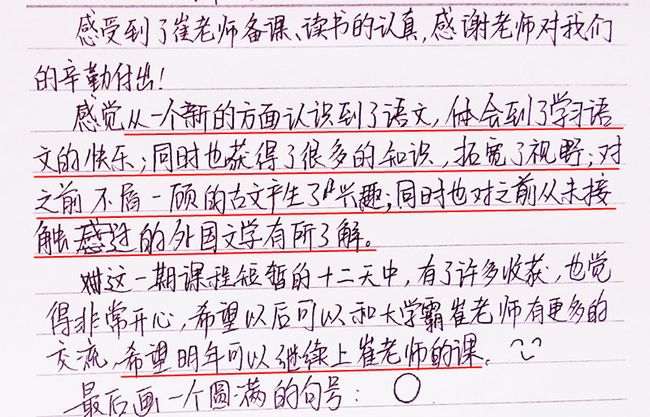 感受到了崔老师备课、读书的认真,感谢老师对我们
的辛勤付出!
感觉从一个新的方面认识到了语文,体会到了学习语
文的快乐;同时也获得了很多的知识,拓宽了视野;对
之前不屑一顾的古文产生了兴趣;同时也对之前从未接
触过的外国文学有所了解。
对这一期课程短暂的十二天中,有了许多收获,也觉
得非常开心,希望以后可以和大学霸崔老师有更多的
交流,希望明年可以继续上崔老师的课.
最后画一个圆满的句号:○